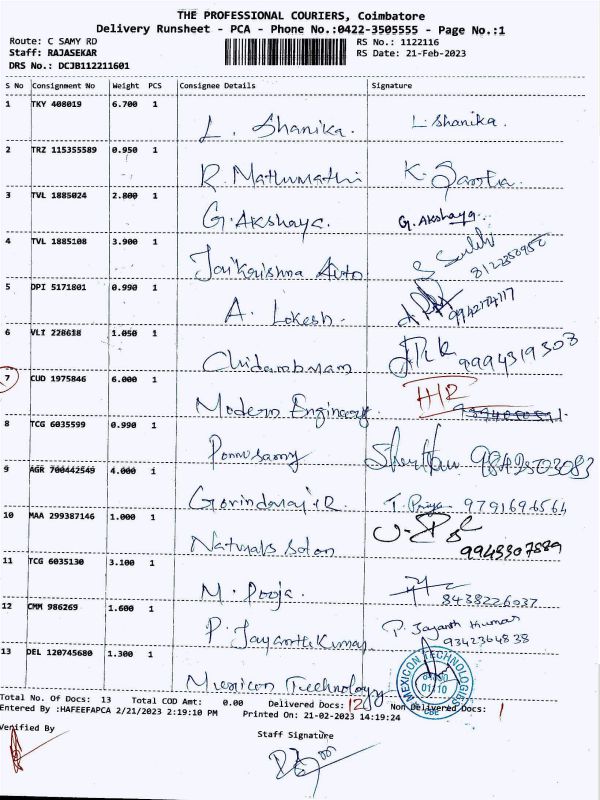 THE PROFESSIONAL COURIERS, Coimbatore
Delivery Runsheet - PCA - Phone No.:0422-3505555 - Page No.:1
Route: C SAMY RD RS No.: 1122116
Staff: RAJASEKAR RS Date: 21-Feb-2023
DRS No.: DCJB112211601
S No Consignment No Weight PCS Consignee Details Signature
1 TKY 408019 6.700 1 L. Shanika. L. Shanika.
2 TRZ 115355589 0.950 1 R. Mathumathi K.
3 TVL 1885024 2.800 1 G. Akshaya. G. Akshaya.
4 TVL 1885108 3.900 1 Jaikrishna Auto
5 DPI 5171801 0.990 1 A. Lokesh.
6 VLI 228618 1.050 1 Chidambaram 9994319303
7 CUD 1975846 6.000 1 Modern Engineery
8 TCG 6035599 0.990 1 Ponnusamy
9 AGR 700442549 4.000 1 Govindaraj.R T. Priya 9791696564
10 MAA 299387146 1.000 1 Naturals Solon 9943307889
11 TCG 6035130 3.100 1 M. Pooja. 8438226037
12 CMM 986269 1.600 1 P. Jayanth Kumar P. Jayanth Kumar
9342364838
13 DEL 120745680 1.300 1 Mexicon Technology MEXICON TECHNOLOGIES CBE
Total No. Of Docs: 13 Total COD Amt: 0.00 Delivered Docs: 12 Non Delivered Docs: 1
Entered By :HAFEEFAPCA 2/21/2023 2:19:10 PM Printed On: 21-02-2023 14:19:24
Verified By Staff Signature